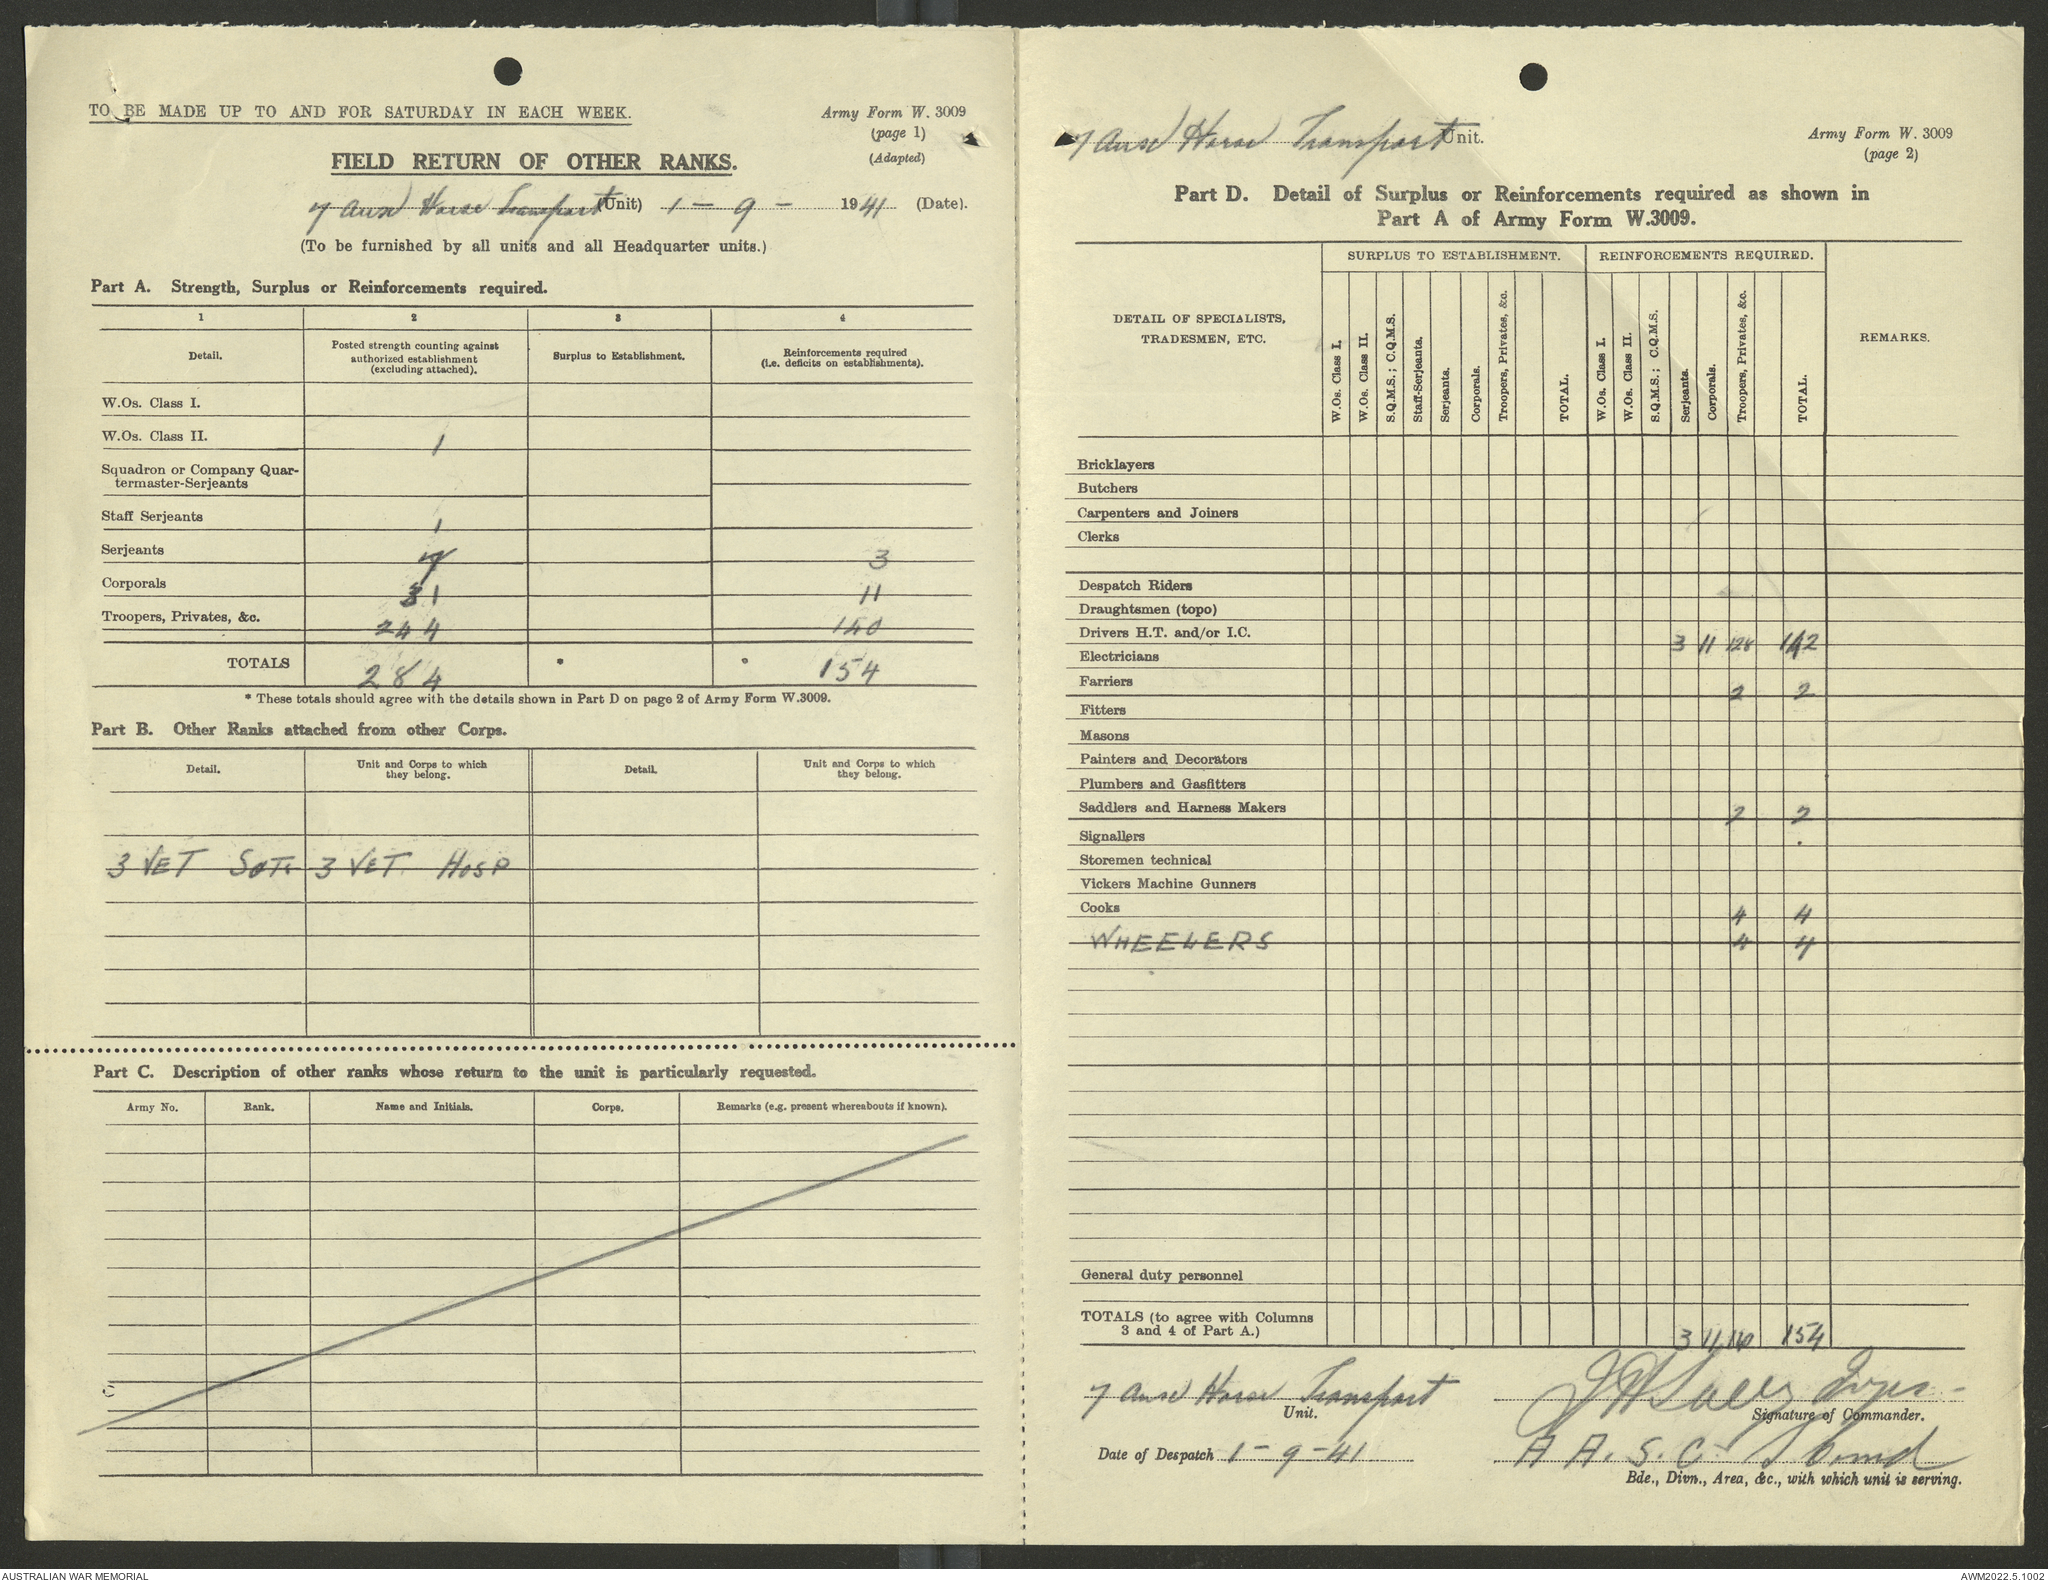 TO BE MADE UP TO AND FOR SATURDAY IN EACH WEEK.
Army Form W. 3009
(page 1)
(Adapted)
FIELD RETURN OF OTHER RANKS.
7 Aust Horse Transport (Unit) 1 - 9 - 1941 (Date).
(To be furnished by all units and all Headquarter units.)
Part A. Strength, Surplus or Reinforcements required.
1 2 3 4
Detail. Posted strength counting against authorized establishment (excluding attached). Surplus to Establishment. Reinforcements required (i.e. deficits on establishments).
W.Os. Class I.
W.Os. Class II. 1
Squadron or Company Quar-
termaster-Serjeants
Staff Serjeants 1
Serjeants 7 3
Corporals 31 11
Troopers, Privates, &c. 244 140
TOTALS 284 * * 154
* These totals should agree with the details shown in Part D on page 2 of Army Form W.3009.
Part B. Other Ranks attached from other Corps.
Detail. Unit and Corps to which they belong. Detail. Unit and Corps to which they belong.
3 VET SGTs 3 VET. HOSP
Part C. Description of other ranks whose return to the unit is particularly requested.
Army No. Rank. Name and Initials. Corps. Remarks (e.g. present whereabouts if known).
7 Aust Horse Transport Unit.
Army Form W. 3009
(page 2)
Part D. Detail of Surplus or Reinforcements required as shown in
Part A of Army Form W.3009.
SURPLUS TO ESTABLISHMENT. REINFORCEMENTS REQUIRED.
DETAIL OF SPECIALISTS,
TRADESMEN, ETC.
W.Os. Class I. W.Os. Class II. S.Q.M.S.; C.Q.M.S. Staff-Serjeants. Serjeants. Corporals. Troopers, Privates, &c. TOTAL. W.Os. Class I. W.Os. Class II. S.Q.M.S.; C.Q.M.S. Serjeants. Corporals. Troopers, Privates, &c. TOTAL.
REMARKS.
Bricklayers
Butchers
Carpenters and Joiners
Clerks
Despatch Riders
Draughtsmen (topo)
Drivers H.T. and/or I.C. 3 11 128 142
Electricians
Farriers 2 2
Fitters
Masons
Painters and Decorators
Plumbers and Gasfitters
Saddlers and Harness Makers 2 2
Signallers
Storemen technical
Vickers Machine Gunners
Cooks 4 4
WHEELERS 4 4
General duty personnel
TOTALS (to agree with Columns
3 and 4 of Part A.) 3 11 140 154
7 Aust Horse Transport
Unit.
Signature of Commander.
Date of Despatch 1 - 9 - 41
A A. S. C.
Bde., Divn., Area, &c., with which unit is serving.
AUSTRALIAN WAR MEMORIAL
AWM2022.5.1002